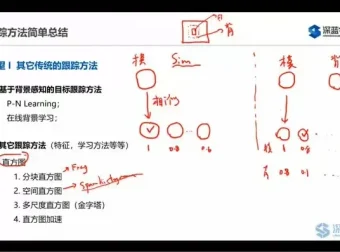 踪方法简单总结
深蓝
望 I 其它传统的跟踪方法
基于背景感知的目标跟踪方法
P-N Learning;
在线背景学习;
其它跟踪方法(特征,学习方法等等)
直方图
1. 分块直方图
Frag
2. 空间直方图
3. 多尺度直方图(金字塔)
4. 直方图加速
背
模
Sim
相似
1 0.8 0.6
模
1 0.8